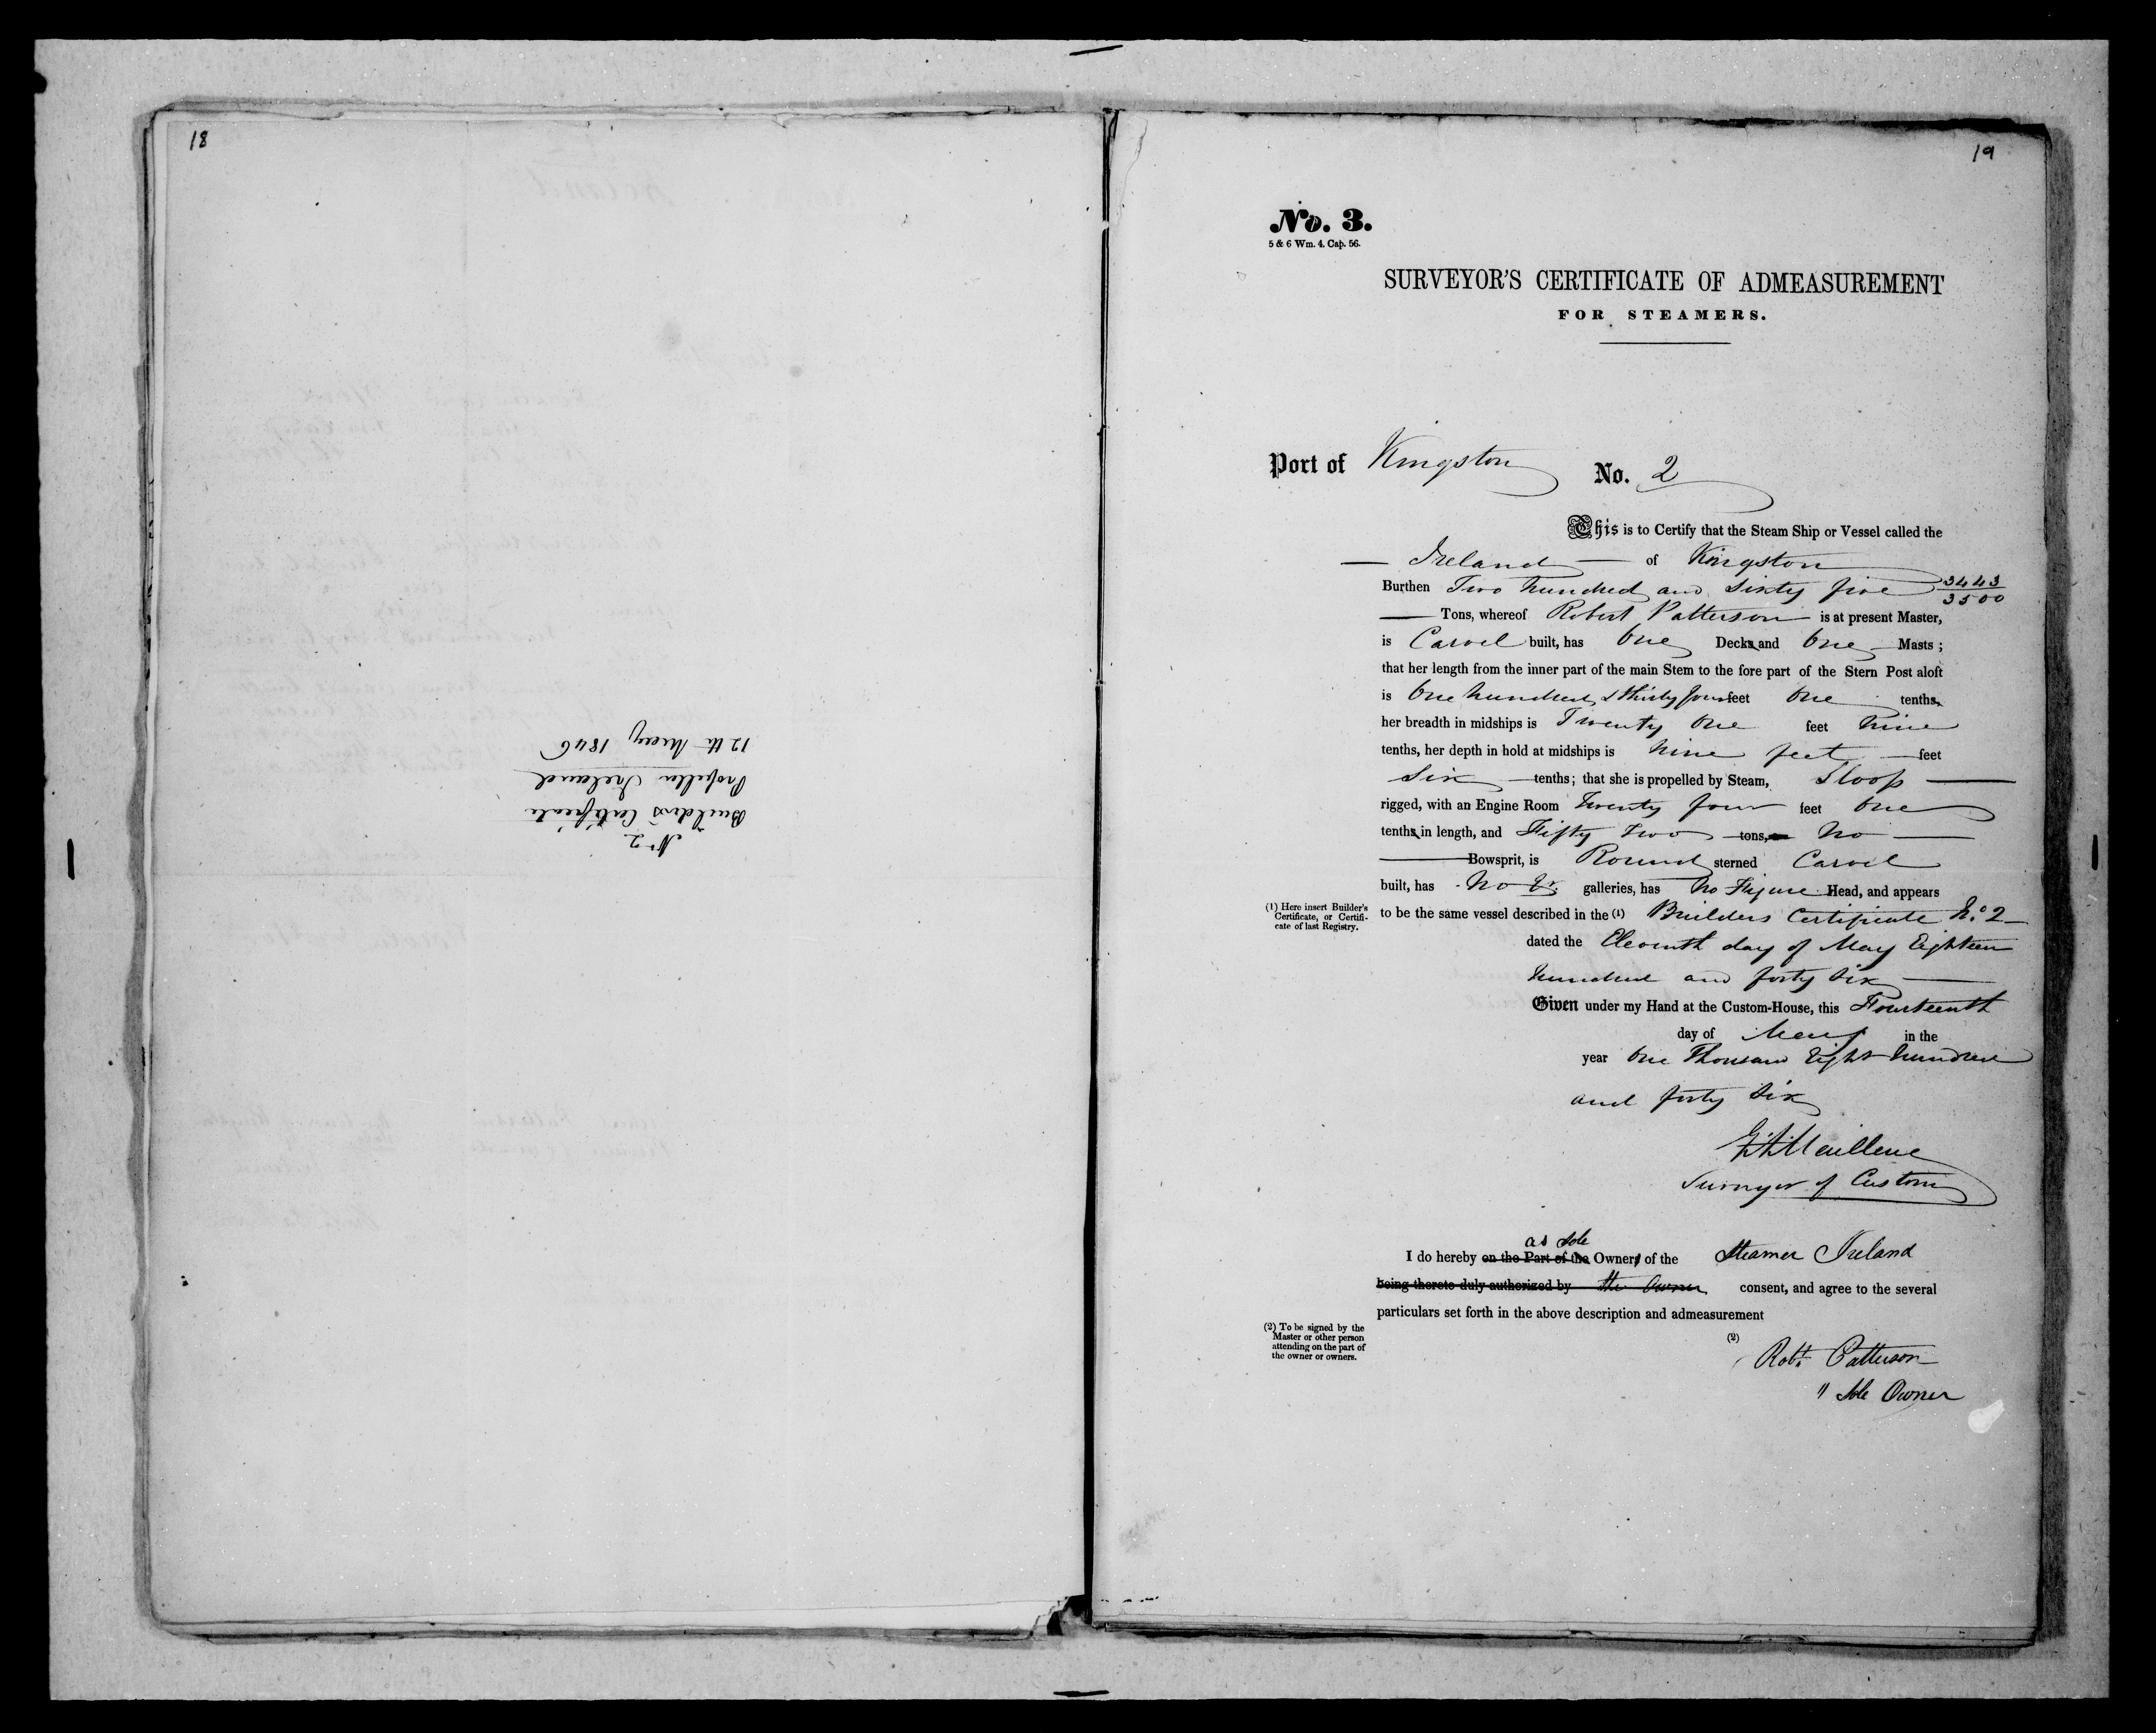 18
No 2
Builders Certificate
Propeller Ireland
12th May 1846
19
No. 3.
5 & 6 Wm. 4. Cap. 56.
SURVEYOR'S CERTIFICATE OF ADMEASUREMENT
FOR STEAMERS.
Port of Kingston No. 2
This is to Certify that the Steam Ship or Vessel called the
Ireland of Kingston
Burthen Two hundred and Sixty five 3443/3500
Tons, whereof Robert Patterson is at present Master,
is Carvel built, has One Decks and One Masts;
that her length from the inner part of the main Stem to the fore part of the Stern Post aloft
is One hundred & thirty four feet One tenths,
her breadth in midships is Twenty One feet Nine
tenths, her depth in hold at midships is Nine feet feet
Six tenths; that she is propelled by Steam, Sloop
rigged, with an Engine Room Twenty four feet One
tenths in length, and Fifty Two tons, No
Bowsprit, is Round sterned Carvel
built, has No Qr. galleries, has No Figure Head, and appears
(1) Here insert Builder's
Certificate, or Certifi-
cate of last Registry.
to be the same vessel described in the (1) Builders Certificate No. 2
dated the Eleventh day of May Eighteen
hundred and forty Six
Given under my Hand at the Custom-House, this Fourteenth
day of May in the
year One Thousand Eight hundred
and forty Six
Surveyor of Customs
as Sole
I do hereby on the Part of the Owners of the Steamer Ireland
being thereto duly authorized by the Owner consent, and agree to the several
particulars set forth in the above description and admeasurement
(2) To be signed by the
Master or other person
attending on the part of
the owner or owners.
(2)
Robt. Patterson
" Sole Owner